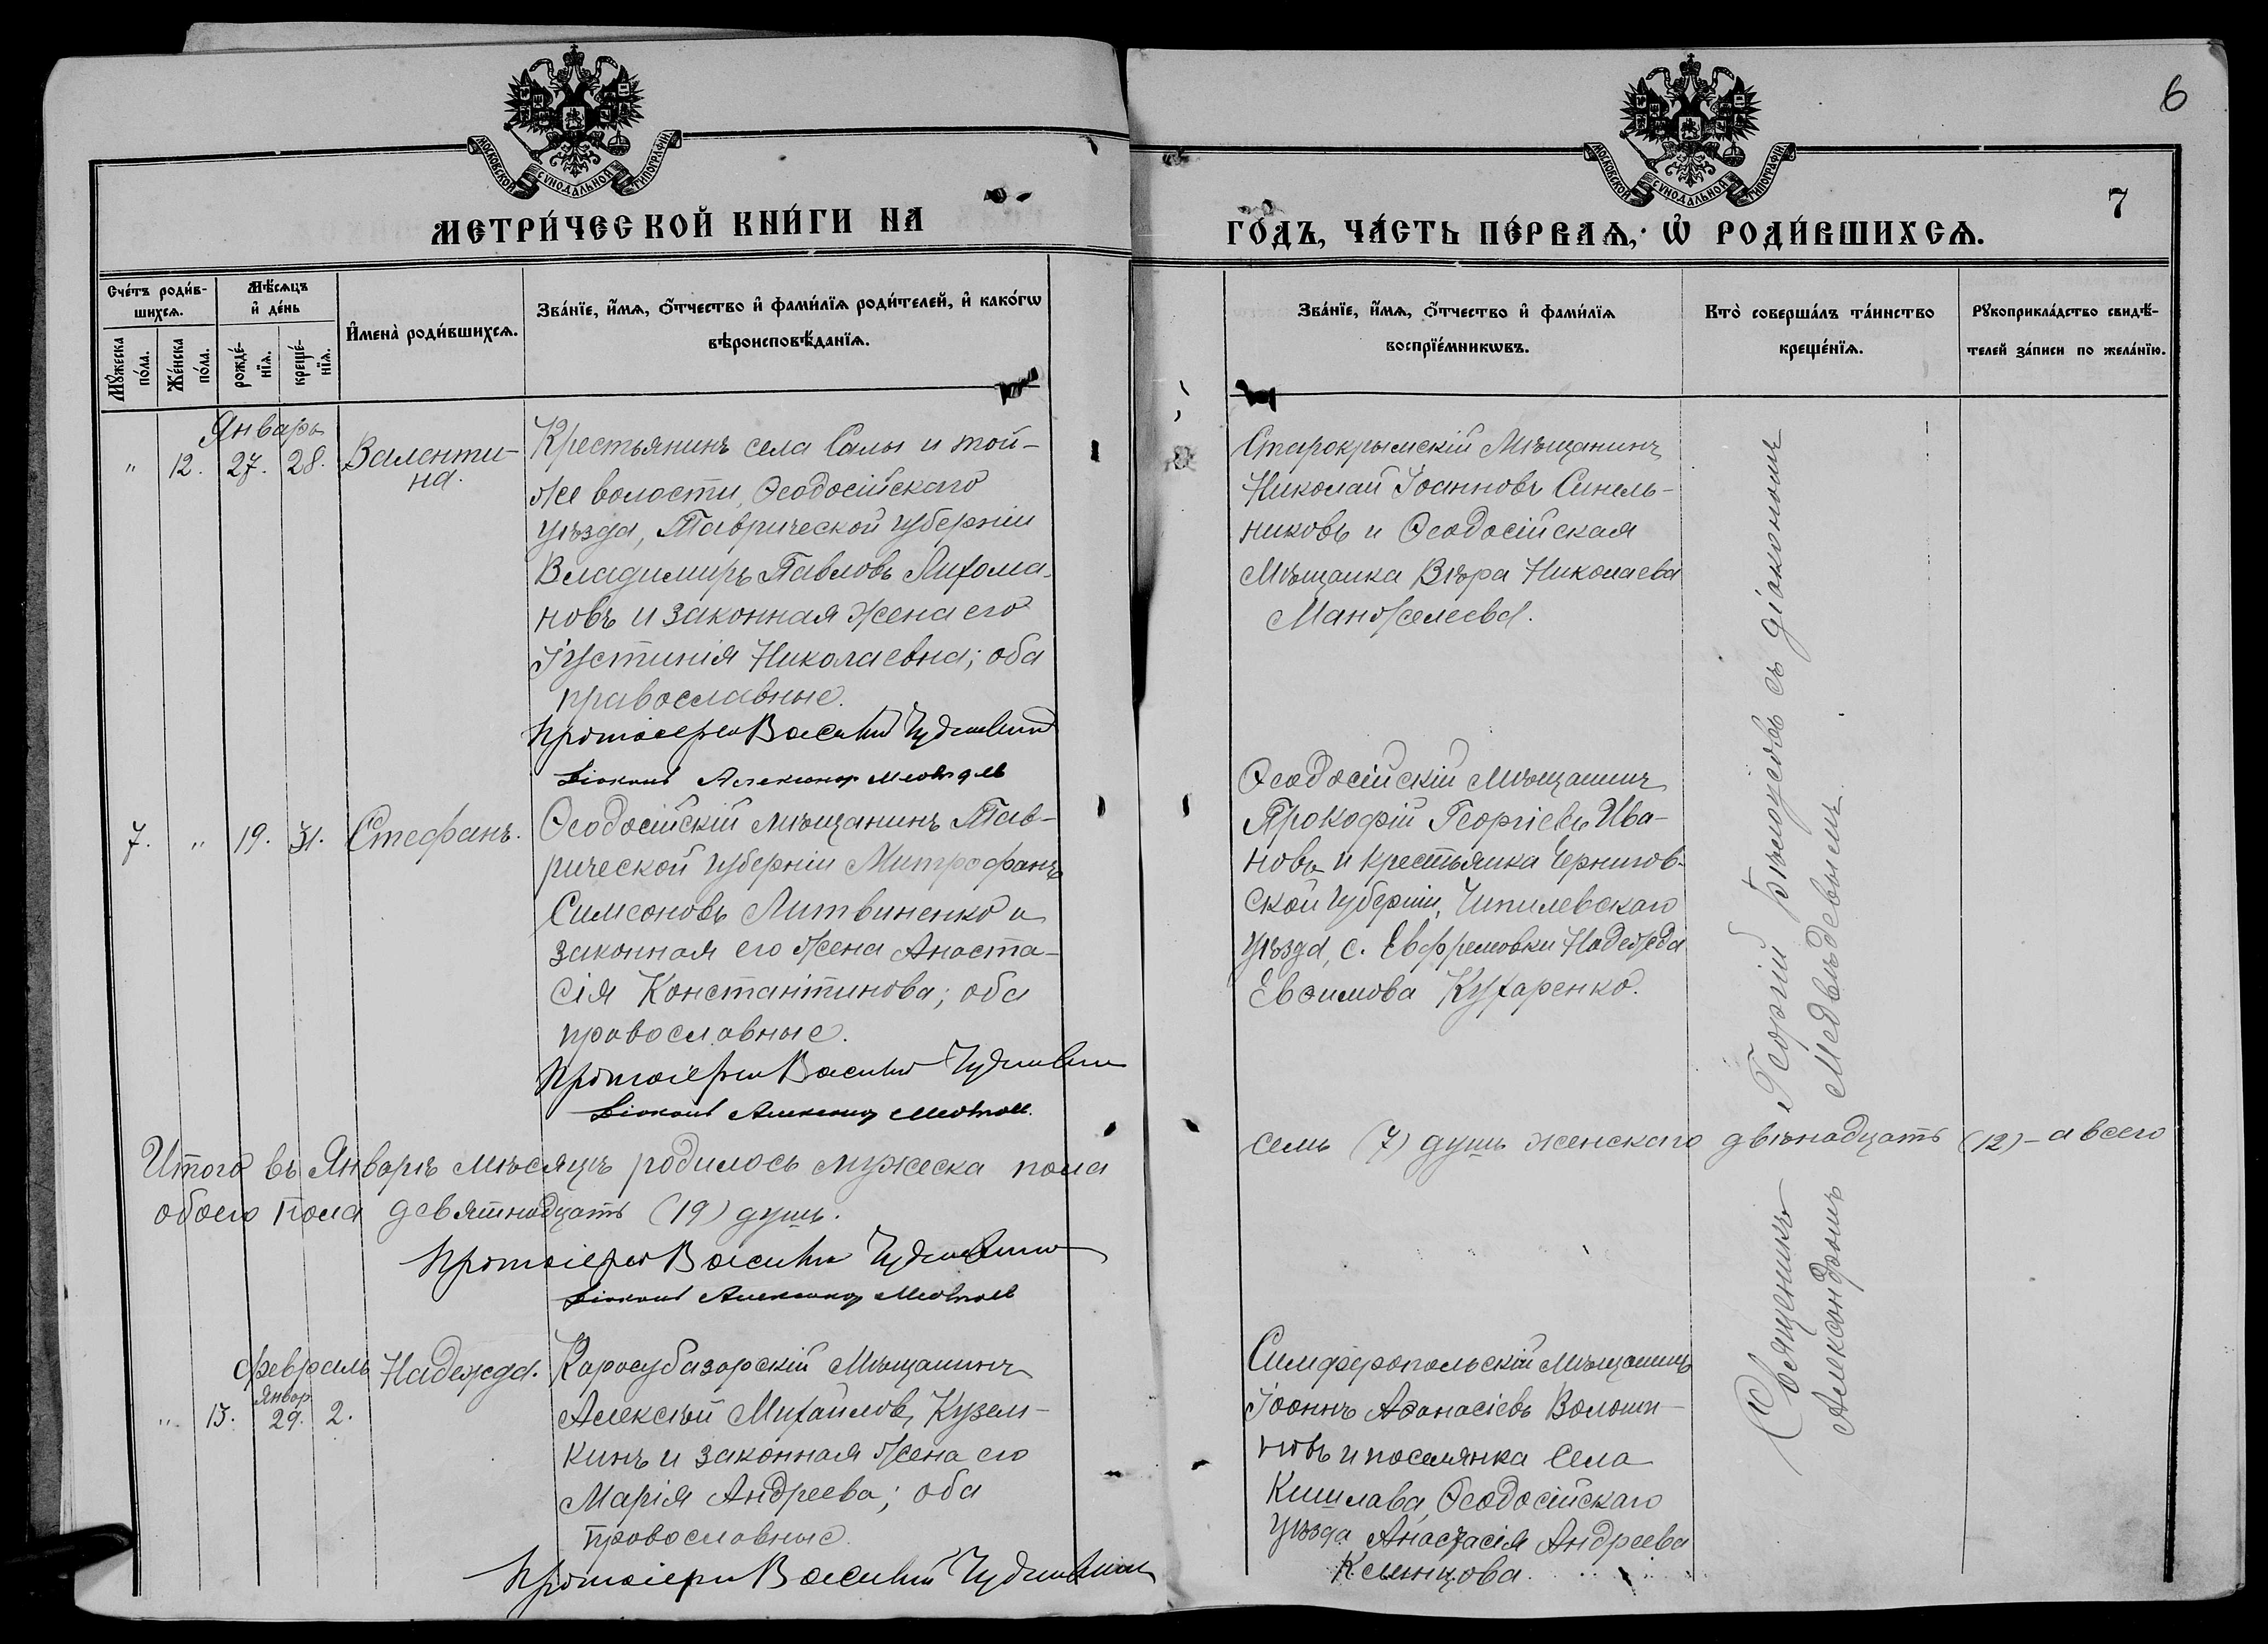 6
МОСКОВСКОЙ СУНОДАЛЬНОЙ ТИПОГРАФІИ
МЕТРИ́ЧЕСКОЙ КНИ́ГИ НА
МОСКОВСКОЙ СУНОДАЛЬНОЙ ТИПОГРАФІИ
ГО́ДЪ, ЧА́СТЬ ПЕ́РВАѦ, Ѡ҆ РОДИ́ВШИХСѦ.
7
Сче́тъ роди́в-
шихсѧ.
Мꙋ́жеска по́ла.
Же́нска по́ла.
Мѣ́сѧцъ
и҆ де́нь
рожде́-
нїѧ.
креще́-
нїѧ.
И҆мена̀ роди́вшихсѧ.
Зва́нїе, и҆́мѧ, ѻ҆́тчество и҆ фами́лїѧ роди́телей, и҆ како́гѡ
вѣроисповѣ́данїѧ.
Зва́нїе, и҆́мѧ, ѻ҆́тчество и҆ фами́лїѧ
воспрїе́мникѡвъ.
Кто̀ соверша́лъ та́инство
креще́нїѧ.
Рꙋкоприкла́дство свидѣ́-
телей за́писи по жела́нїю.
Январь
" 12. 27. 28. Валенти-
на.
Крестьянинъ села Салы и той-
же волости, Ѳеодосійскаго
уѣзда, Таврической губерніи
Владимиръ Павловъ Лихома-
новъ и законная жена его
Іустинія Николаевна; оба
православные.
Протоіерей Василій
Діаконъ Александръ Медвѣдевъ
Старокрымскій Мѣщанинъ
Николай Іоанновъ Синель-
никовъ и Ѳеодосійская
Мѣщанка Вѣра Николаева
Манжелеева.
7. " 19. 31. Стефанъ.
Ѳеодосійскій мѣщанинъ Тав-
рической губерніи Митрофанъ
Симеоновъ Литвиненко и
законная его жена Анаста-
сія Константинова; оба
православные.
Протоіерей Василій
Діаконъ Александръ Медвѣдевъ
Ѳеодосійскій Мѣщанинъ
Прокофій Георгіевъ Ива-
новъ и крестьянка Чернигов-
ской губерніи,
уѣзда, с. Евфремовки Надежда
Евѳимова Кухаренко.
Священникъ Георгій съ діакономъ
Александромъ Медвѣдевымъ.
Итого въ Январѣ мѣсяцѣ родилось мужеска пола
семь (7) душъ женскаго двѣнадцать (12) – а всего
обоего пола девятнадцать (19) душъ.
Протоіерей Василій
Діаконъ Александръ Медвѣдевъ
Февраль
Январ.
" 13. 29. 2. Надежда.
Карасубазарскій Мѣщанинъ
Алексѣй Михайловъ Кузем-
кинъ и законная жена его
Марія Андреева; оба
православные.
Протоіерей Василій
Симферопольскій мѣщанинъ
Іоаннъ Аѳанасіевъ Волоши-
новъ и поселянка села
Кишлава, Ѳеодосійскаго
уѣзда Анастасія Андреева